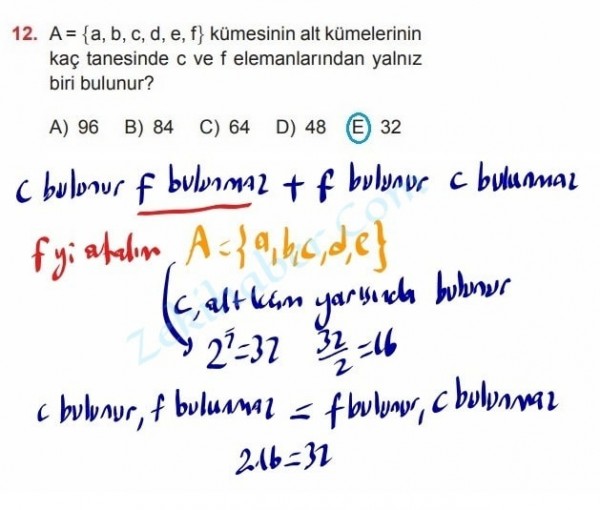 12. A = {a, b, c, d, e, f} kümesinin alt kümelerinin
kaç tanesinde c ve f elemanlarından yalnız
biri bulunur?
A) 96 B) 84 C) 64 D) 48 E) 32
c bulunur f bulunmaz + f bulunur c bulunmaz
f yi atalım A={a,b,c,d,e}
c, alt küm yarısında bulunur
2⁵=32 32/2=16
c bulunur, f bulunmaz = f bulunur, c bulunmaz
2.16=32